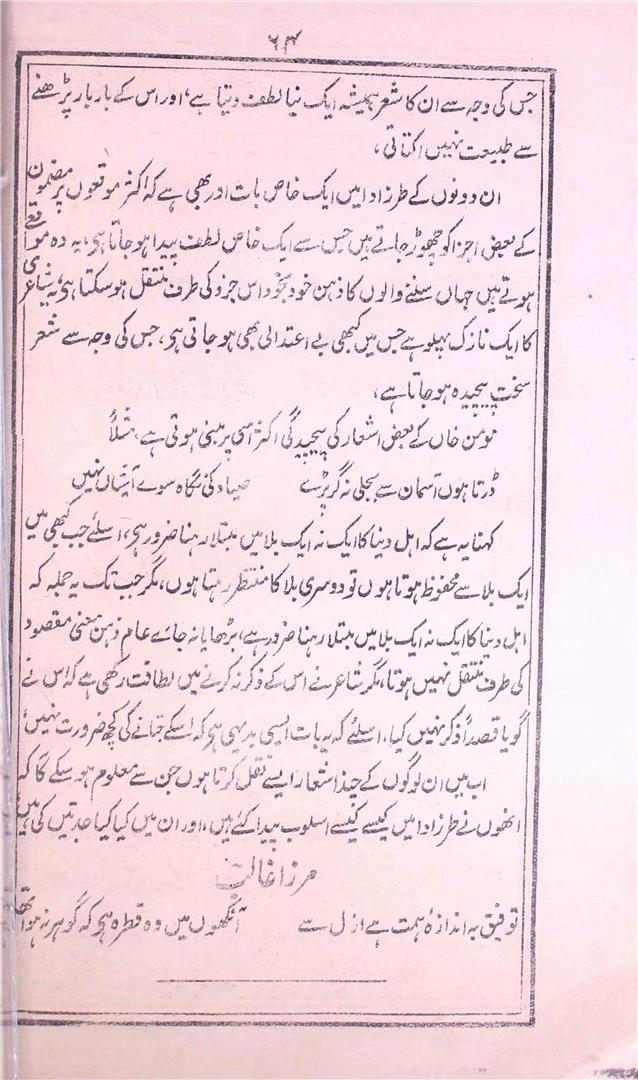 ۶۴
جس کی وجہ سے ان کا شعر ہمیشہ ایک نیا لطف دیتا ہے، اور اس کے بار بار پڑھنے
سے طبیعت نہیں اکتاتی،
ان دونوں کے طرز ادا میں ایک خاص بات اور بھی ہے کہ اکثر موقعوں پر مضمون
کے بعض اجزا کو چھوڑ جاتے ہیں جس سے ایک خاص لطف پیدا ہو جاتا ہی، یہ وہ مواقع
ہوتے ہیں جہاں سننے والوں کا ذہن خود بخود اس جزو کی طرف منتقل ہو سکتا ہی، یہ شاعری
کا ایک نازک پہلو ہے جس میں کبھی بے اعتدالی بھی ہو جاتی ہی، جس کی وجہ سے شعر
سخت پیچیدہ ہو جاتا ہے،
مومن خاں کے بعض اشعار کی پیچیدگی اکثر اسی پر مبنی ہوتی ہے، مثلاً
ڈرتا ہوں آسمان سے بجلی نہ گر پڑے صیاد کی نگاہ سوے آشیاں نہیں
کہنا یہ ہے کہ اہل دینا کا ایک نہ ایک بلا میں مبتلا رہنا ضرور ہی، اسلئے جب کبھی میں
ایک بلا سے محفوظ ہوتا ہوں تو دوسری بلا کا منتظر رہتا ہوں، مگر جب تک یہ جملہ کہ
اہل دینا کا ایک نہ ایک بلا میں مبتلا رہنا ضرور ہے، بڑھایا نہ جائے عام ذہن معنی مقصود
کی طرف منتقل نہیں ہوتا، مگر شاعر نے اس کے ذکر نہ کرنے میں لطافت رکھی ہے کہ اس نے
گویا قصداً ذکر نہیں کیا، اسلئے کہ یہ بات ایسی بدیہی ہی کہ اسکے جتانے کی کچھ ضرورت نہیں،
اب میں ان لوگوں کے چند اشعار ایسے نقل کرتا ہوں جن سے معلوم ہو سکے گا کہ
انھوں نے طرز ادا میں کیسے کیسے اسلوب پیدا کئے ہیں، اور ان میں کیا کیا جدتیں کی ہیں
مرزا غالب
توفیق بہ اندازۂ ہمت ہے ازل سے آنکھوں میں وہ قطرہ ہی کہ گوہر نہ ہوا تھا